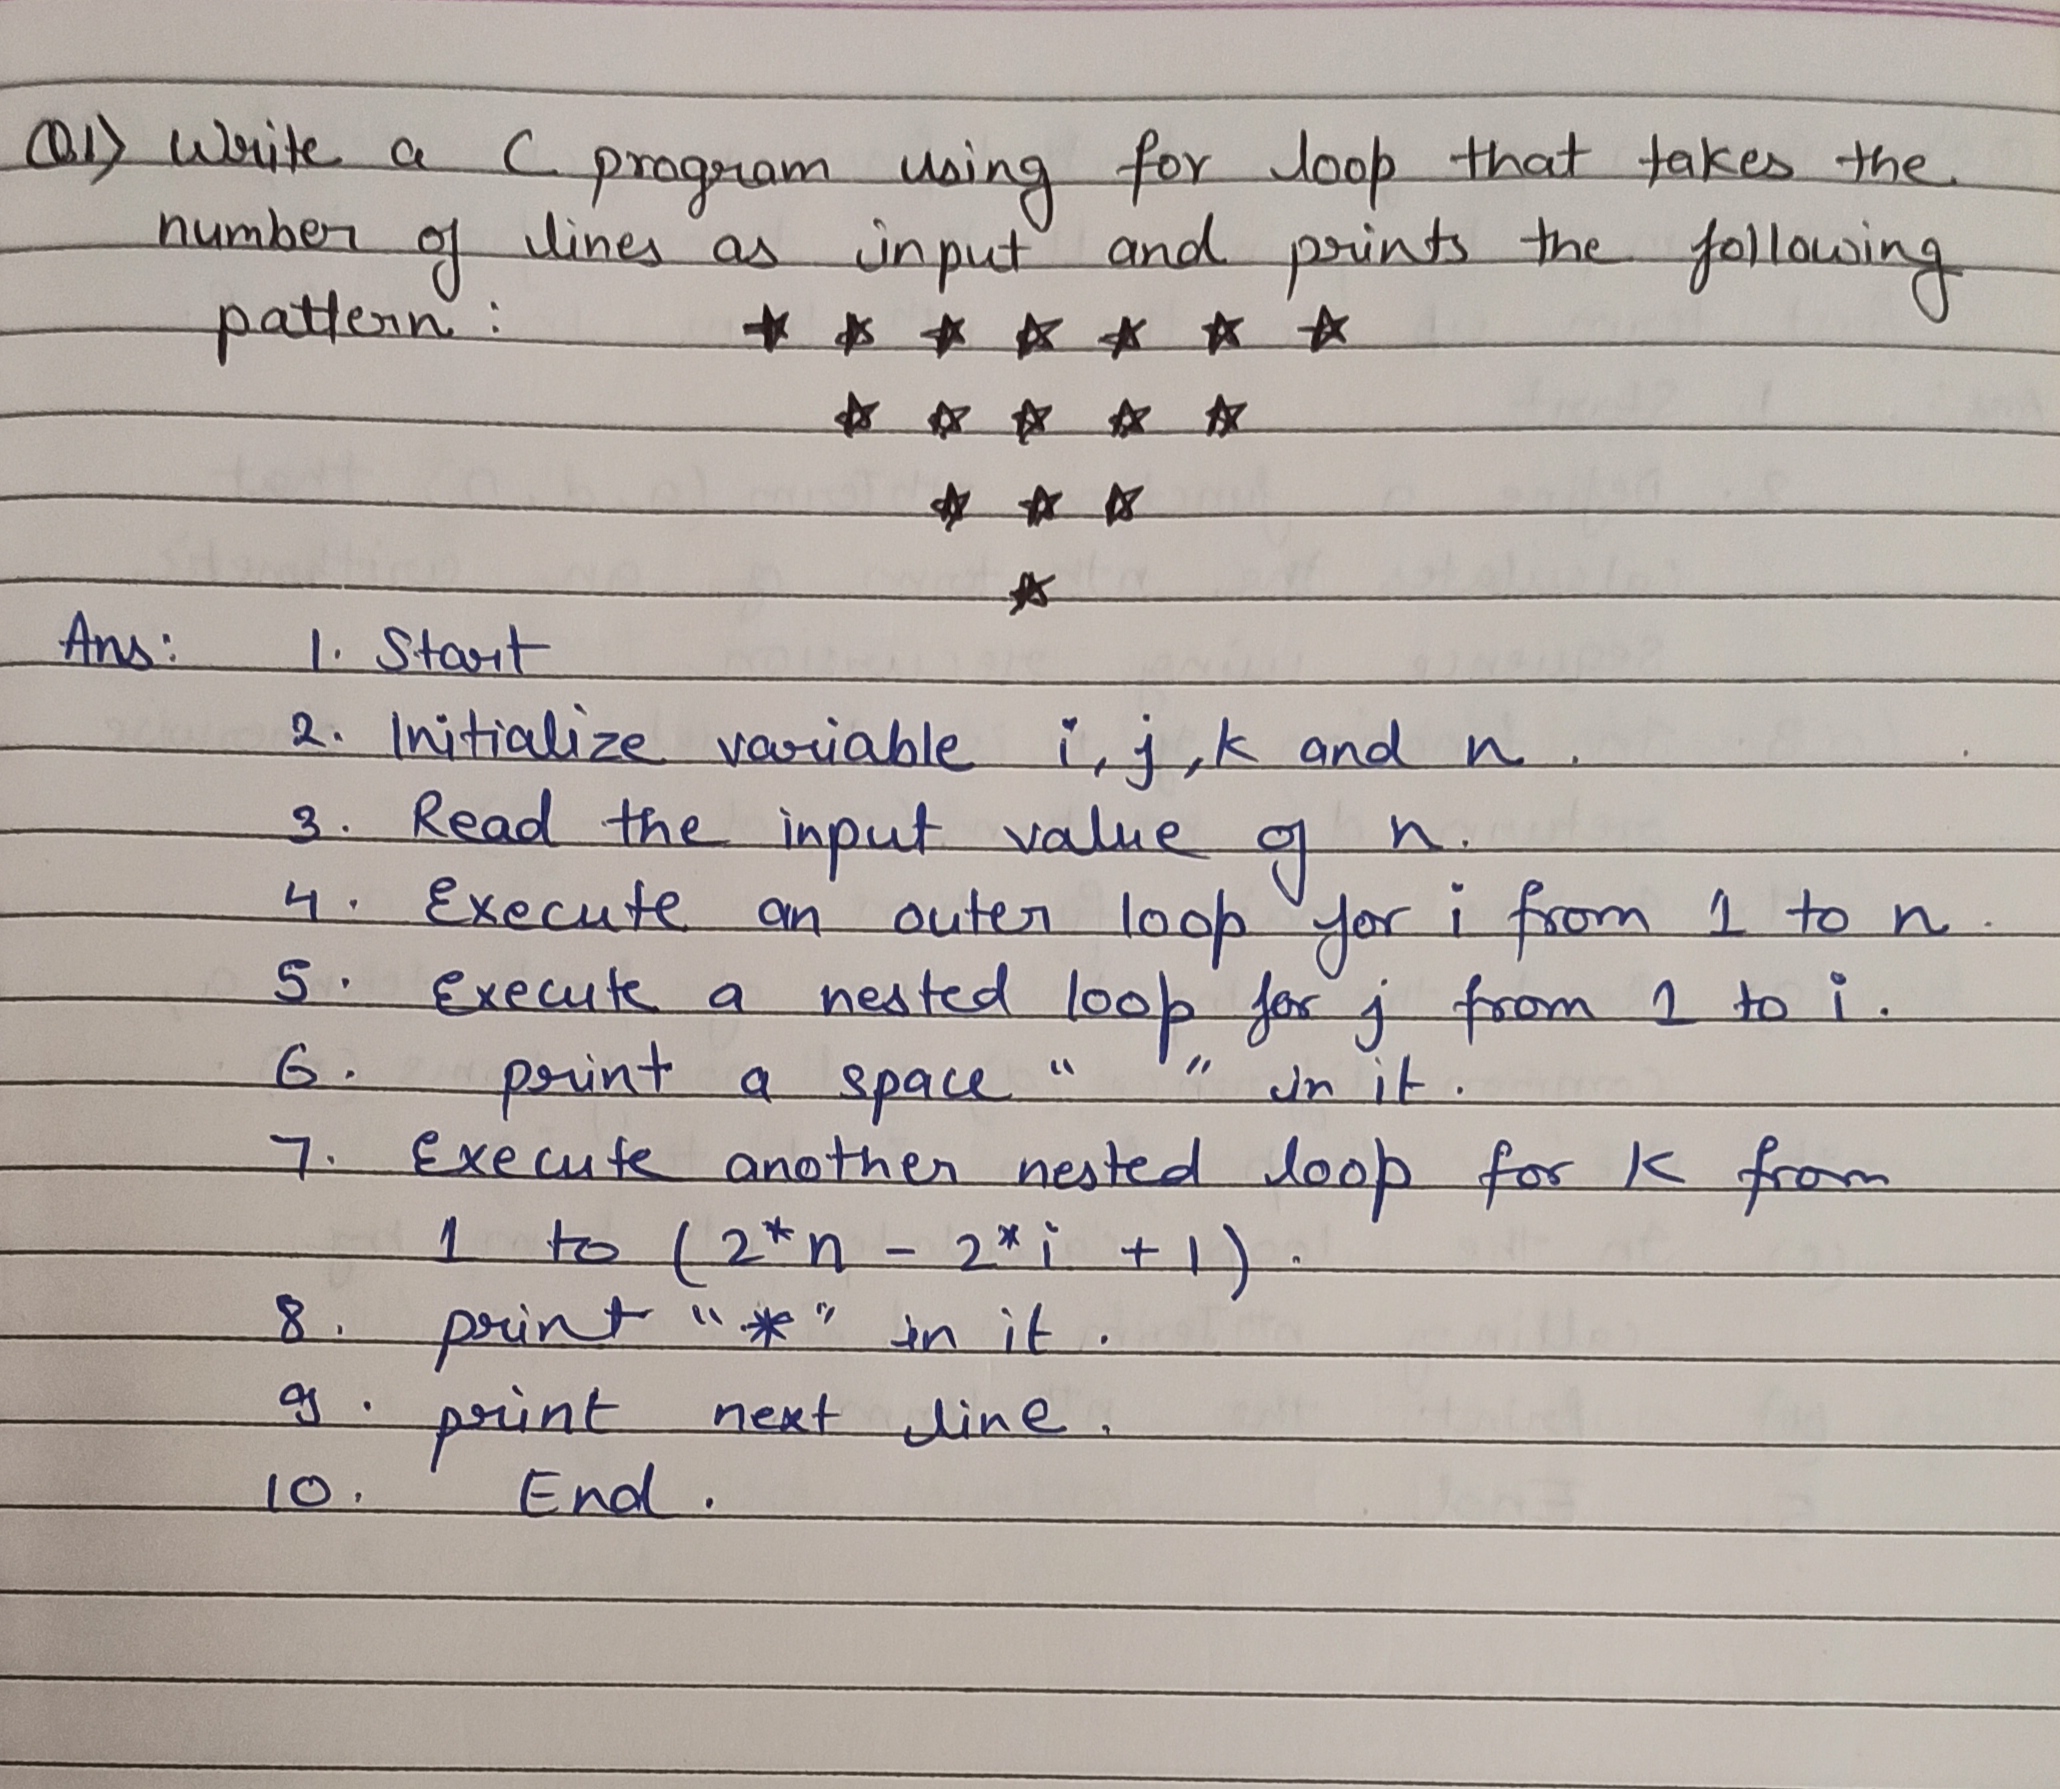 Q1) Write a C program using for loop that takes the
number of lines as input and prints the following
pattern : * * * * * * *
* * * * *
* * *
*
Ans: 1. Start
2. Initialize variable i, j, k and n.
3. Read the input value of n.
4. Execute an outer loop for i from 1 to n.
5. Execute a nested loop for j from 1 to i.
6. print a space " " in it.
7. Execute another nested loop for k from
1 to (2*n - 2*i + 1).
8. print "*" in it.
9. print next line.
10. End.